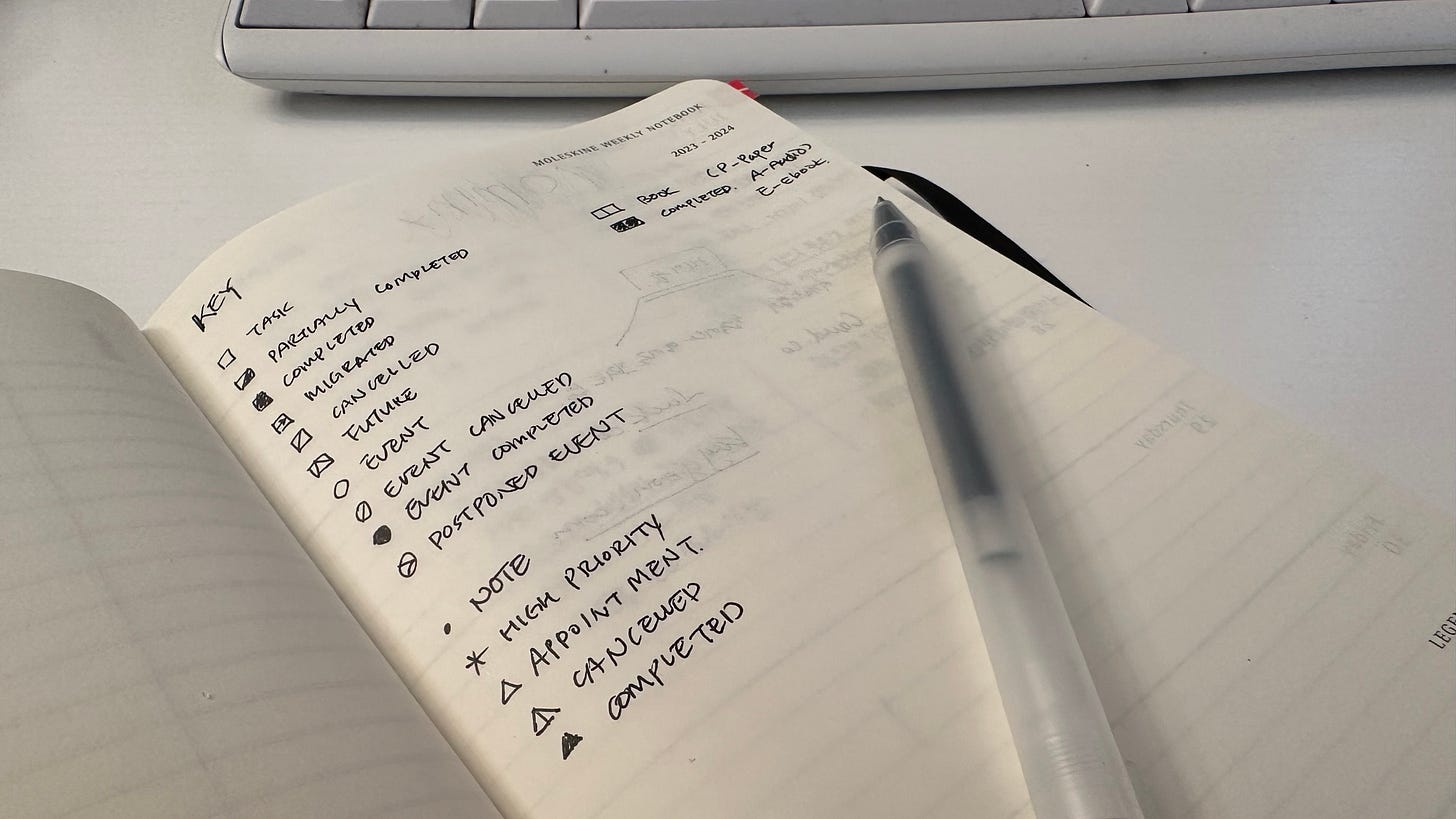 MOLESKINE WEEKLY NOTEBOOK
2023 - 2024
BOOK (P-Paper
COMPLETED. A-Audio)
E-Ebook.
KEY
TASK
PARTIALLY COMPLETED
COMPLETED
MIGRATED
CANCELLED
FUTURE
EVENT
EVENT CANCELLED
EVENT COMPLETED
POSTPONED EVENT
• NOTE
* HIGH PRIORITY
APPOINTMENT.
CANCELLED
COMPLETED
Thursday
29
Friday
30